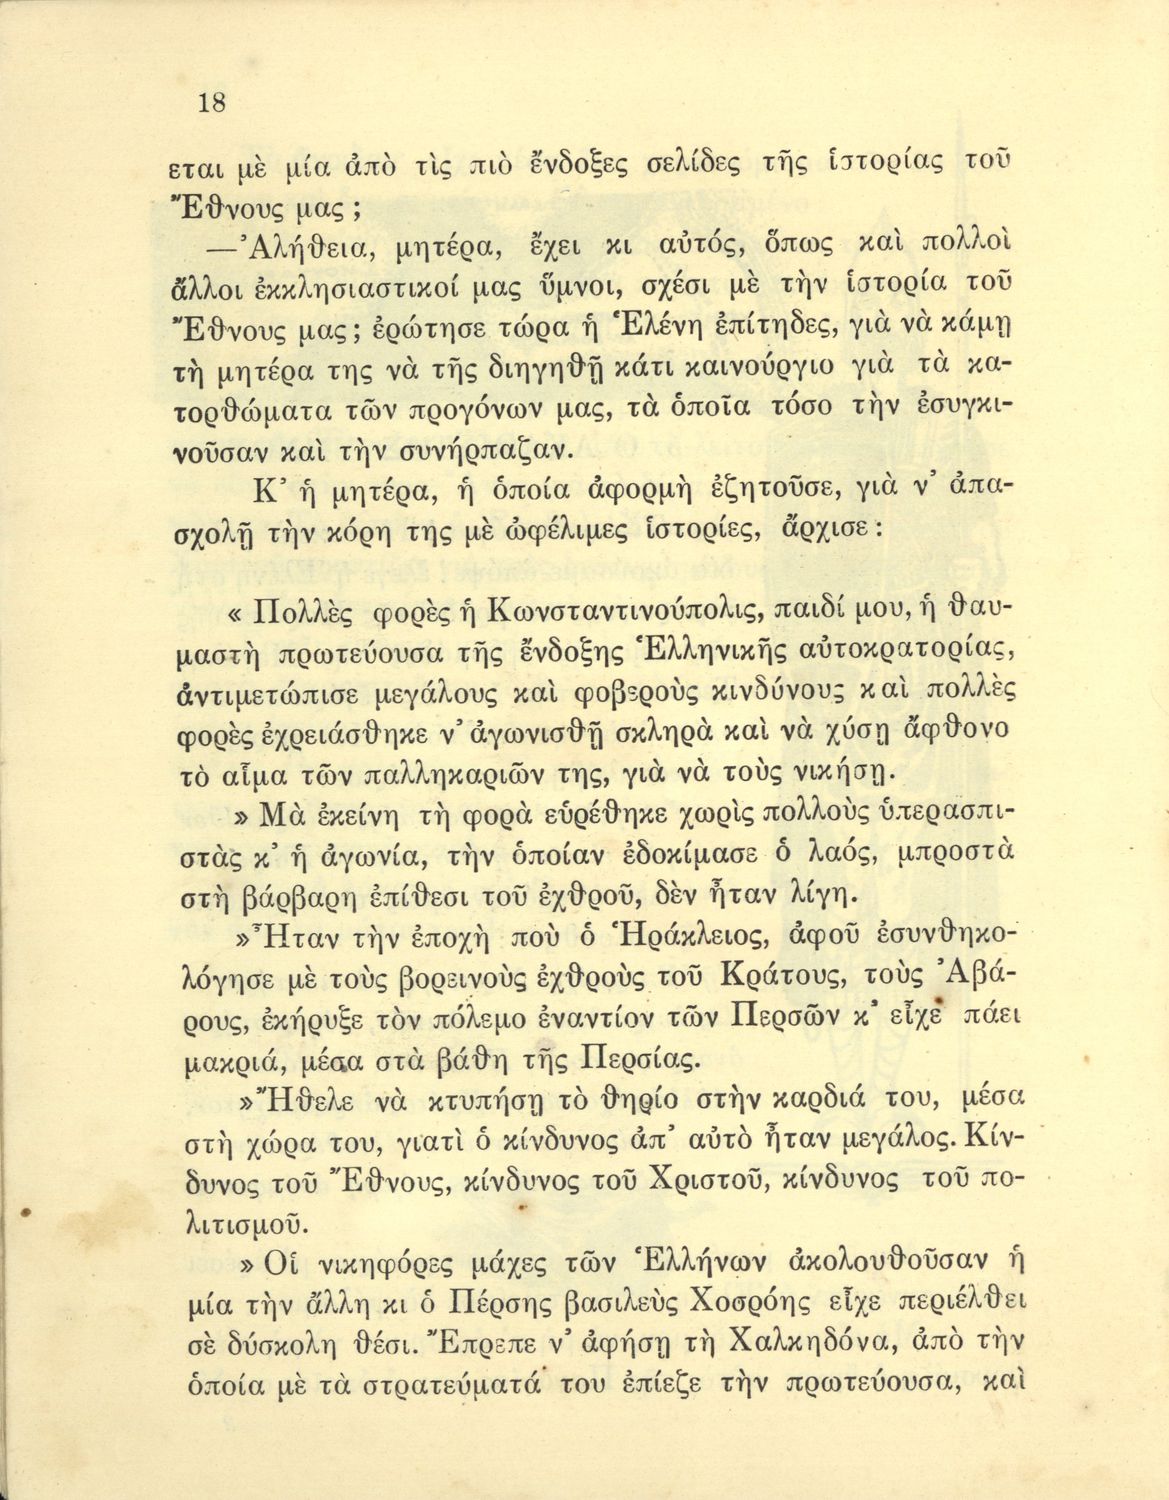 18
εται μὲ μία ἀπὸ τὶς πιὸ ἔνδοξες σελίδες τῆς ἱστορίας τοῦ
Ἔθνους μας ;
—Ἀλήθεια, μητέρα, ἔχει κι αὐτός, ὅπως καὶ πολλοὶ
ἄλλοι ἐκκλησιαστικοί μας ὕμνοι, σχέσι μὲ τὴν ἱστορία τοῦ
Ἔθνους μας; ἐρώτησε τώρα ἡ Ἑλένη ἐπίτηδες, γιὰ νὰ κάμῃ
τὴ μητέρα της νὰ τῆς διηγηθῇ κάτι καινούργιο γιὰ τὰ κα-
τορθώματα τῶν προγόνων μας, τὰ ὁποῖα τόσο τὴν ἐσυγκι-
νοῦσαν καὶ τὴν συνήρπαζαν.
Κ’ ἡ μητέρα, ἡ ὁποία ἀφορμὴ ἐζητοῦσε, γιὰ ν’ ἀπα-
σχολῇ τὴν κόρη της μὲ ὠφέλιμες ἱστορίες, ἄρχισε :
« Πολλὲς φορὲς ἡ Κωνσταντινούπολις, παιδί μου, ἡ θαυ-
μαστὴ πρωτεύουσα τῆς ἔνδοξης Ἑλληνικῆς αὐτοκρατορίας,
ἀντιμετώπισε μεγάλους καὶ φοβεροὺς κινδύνους καὶ πολλὲς
φορὲς ἐχρειάσθηκε ν’ ἀγωνισθῇ σκληρὰ καὶ νὰ χύσῃ ἄφθονο
τὸ αἷμα τῶν παλληκαριῶν της, γιὰ νὰ τοὺς νικήσῃ.
» Μὰ ἐκείνη τὴ φορὰ εὑρέθηκε χωρὶς πολλοὺς ὑπερασπι-
στὰς κ’ ἡ ἀγωνία, τὴν ὁποίαν ἐδοκίμασε ὁ λαός, μπροστὰ
στὴ βάρβαρη ἐπίθεσι τοῦ ἐχθροῦ, δὲν ἦταν λίγη.
»Ἦταν τὴν ἐποχὴ ποὺ ὁ Ἡράκλειος, ἀφοῦ ἐσυνθηκο-
λόγησε μὲ τοὺς βορεινοὺς ἐχθροὺς τοῦ Κράτους, τοὺς Ἀβά-
ρους, ἐκήρυξε τὸν πόλεμο ἐναντίον τῶν Περσῶν κ’ εἶχε πάει
μακριά, μέσα στὰ βάθη τῆς Περσίας.
»Ἤθελε νὰ κτυπήσῃ τὸ θηρίο στὴν καρδιά του, μέσα
στὴ χώρα του, γιατὶ ὁ κίνδυνος ἀπ’ αὐτὸ ἦταν μεγάλος. Κίν-
δυνος τοῦ Ἔθνους, κίνδυνος τοῦ Χριστοῦ, κίνδυνος τοῦ πο-
λιτισμοῦ.
» Οἱ νικηφόρες μάχες τῶν Ἑλλήνων ἀκολουθοῦσαν ἡ
μία τὴν ἄλλη κι ὁ Πέρσης βασιλεὺς Χοσρόης εἶχε περιέλθει
σὲ δύσκολη θέσι. Ἔπρεπε ν’ ἀφήσῃ τὴ Χαλκηδόνα, ἀπὸ τὴν
ὁποία μὲ τὰ στρατεύματά του ἐπίεζε τὴν πρωτεύουσα, καὶ